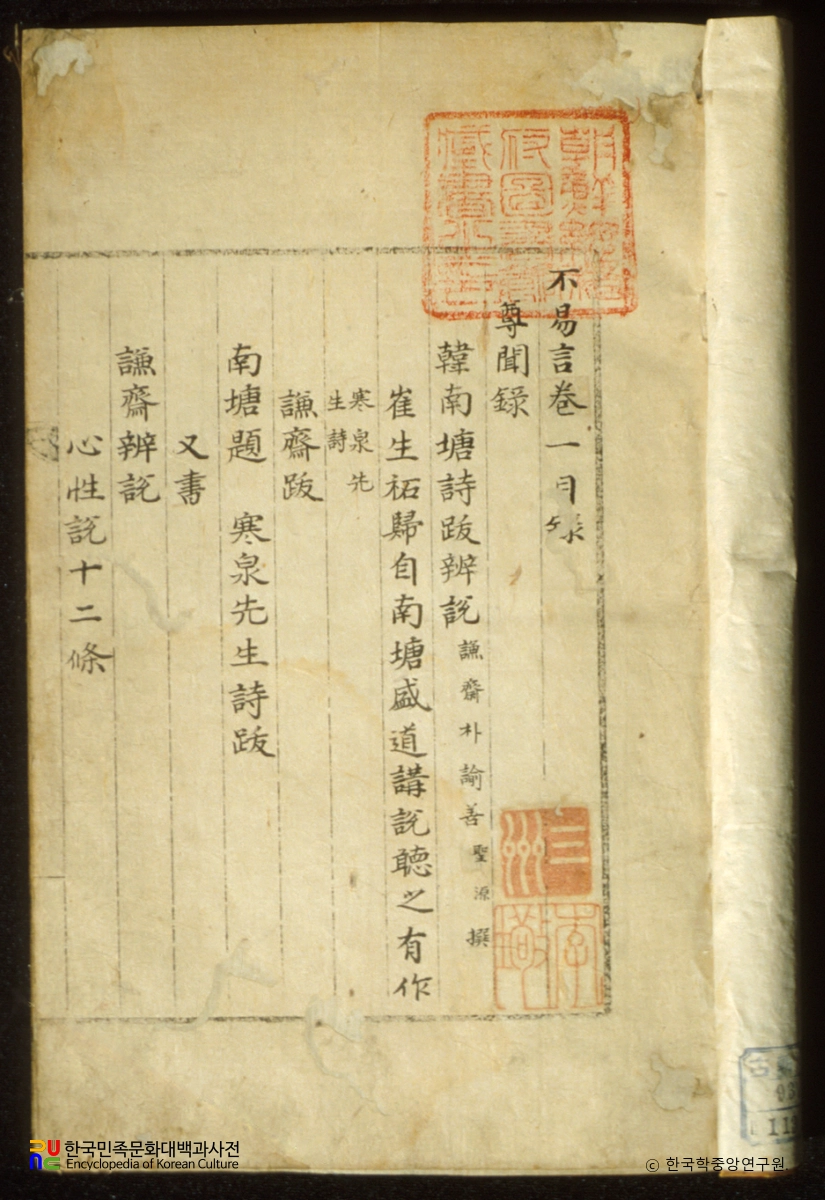 不易言卷一目錄
尊聞錄
韓南塘詩跋辨說 謙齋朴諭善聖源撰
崔生祏歸自南塘盛道講說聽之有作
寒泉先
生詩
謙齋跋
南塘題 寒泉先生詩跋
又書
謙齋辨說
心性說十二條
朝鮮總督
府圖書館
藏書之印
三州
한국민족문화대백과사전
Encyclopedia of Korean Culture
© 한국학중앙연구원